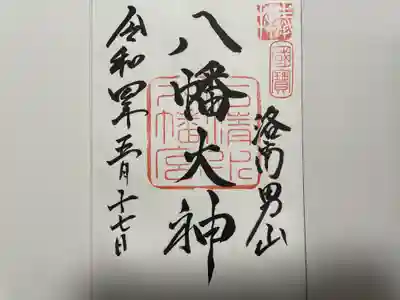 國寶
洛南男山
八幡大神
石清水
八幡宮
令和四年五月二十七日